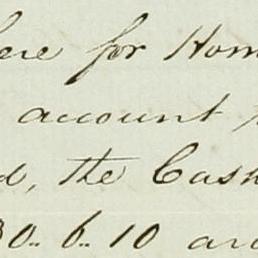 here for Hom
account
d, the Cash
30.. 6.. 10 and